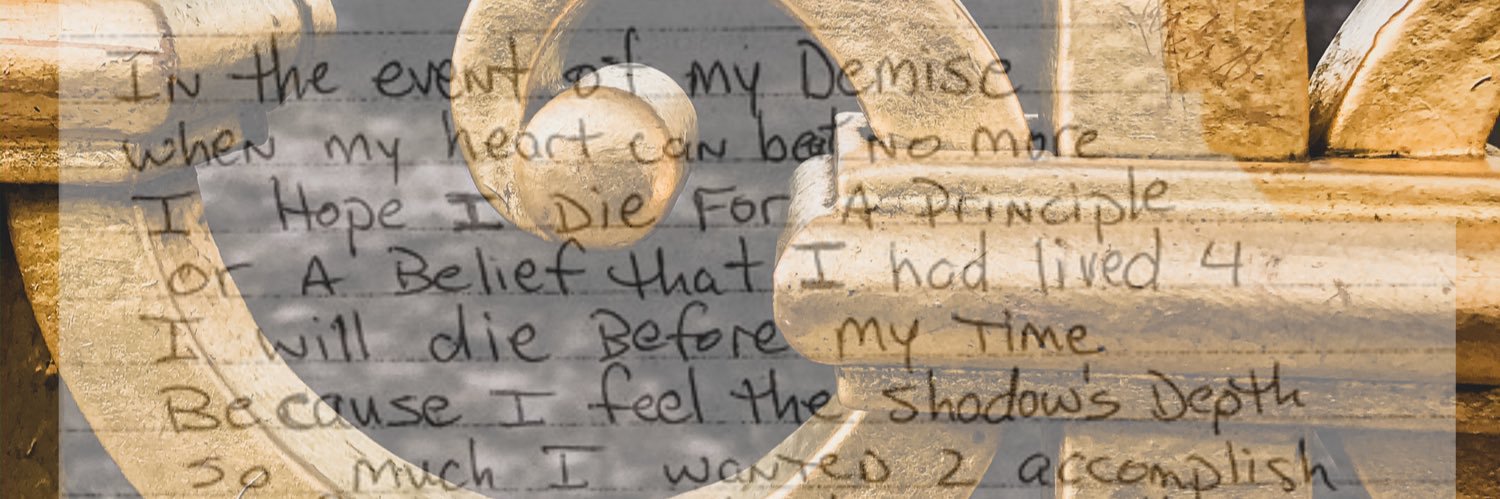 IN the event of my Demise
when my heart can beat no more
I Hope I Die For A Principle
or A Belief that I had lived 4
I will die Before My Time
Because I feel the shadow's Depth
so much I wanted 2 accomplish